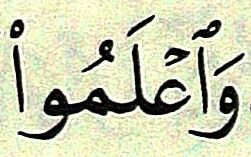 وَٱعۡلَمُواْ